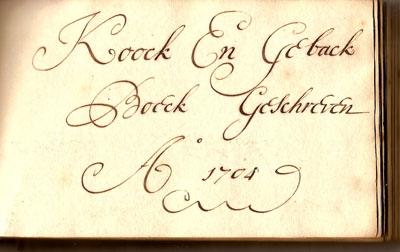 Koock En Geback
Boeck Geschreven
A° 1704